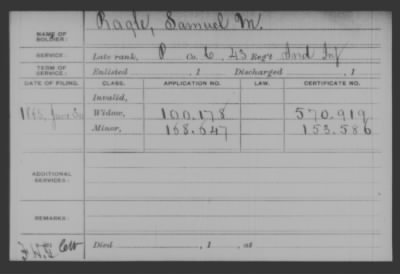 NAME OF SOLDIER: Ragle, Samuel M.
SERVICE: Late rank, P Co. G, 43 Reg't Ind Inf
TERM OF SERVICE: Enlisted , 1 Discharged , 1
DATE OF FILING. CLASS. APPLICATION NO. LAW. CERTIFICATE NO.
Invalid,
Widow, 100.178 570.919
Minor, 168.647 153.586
ADDITIONAL SERVICES:
REMARKS:
Died , 1 , at